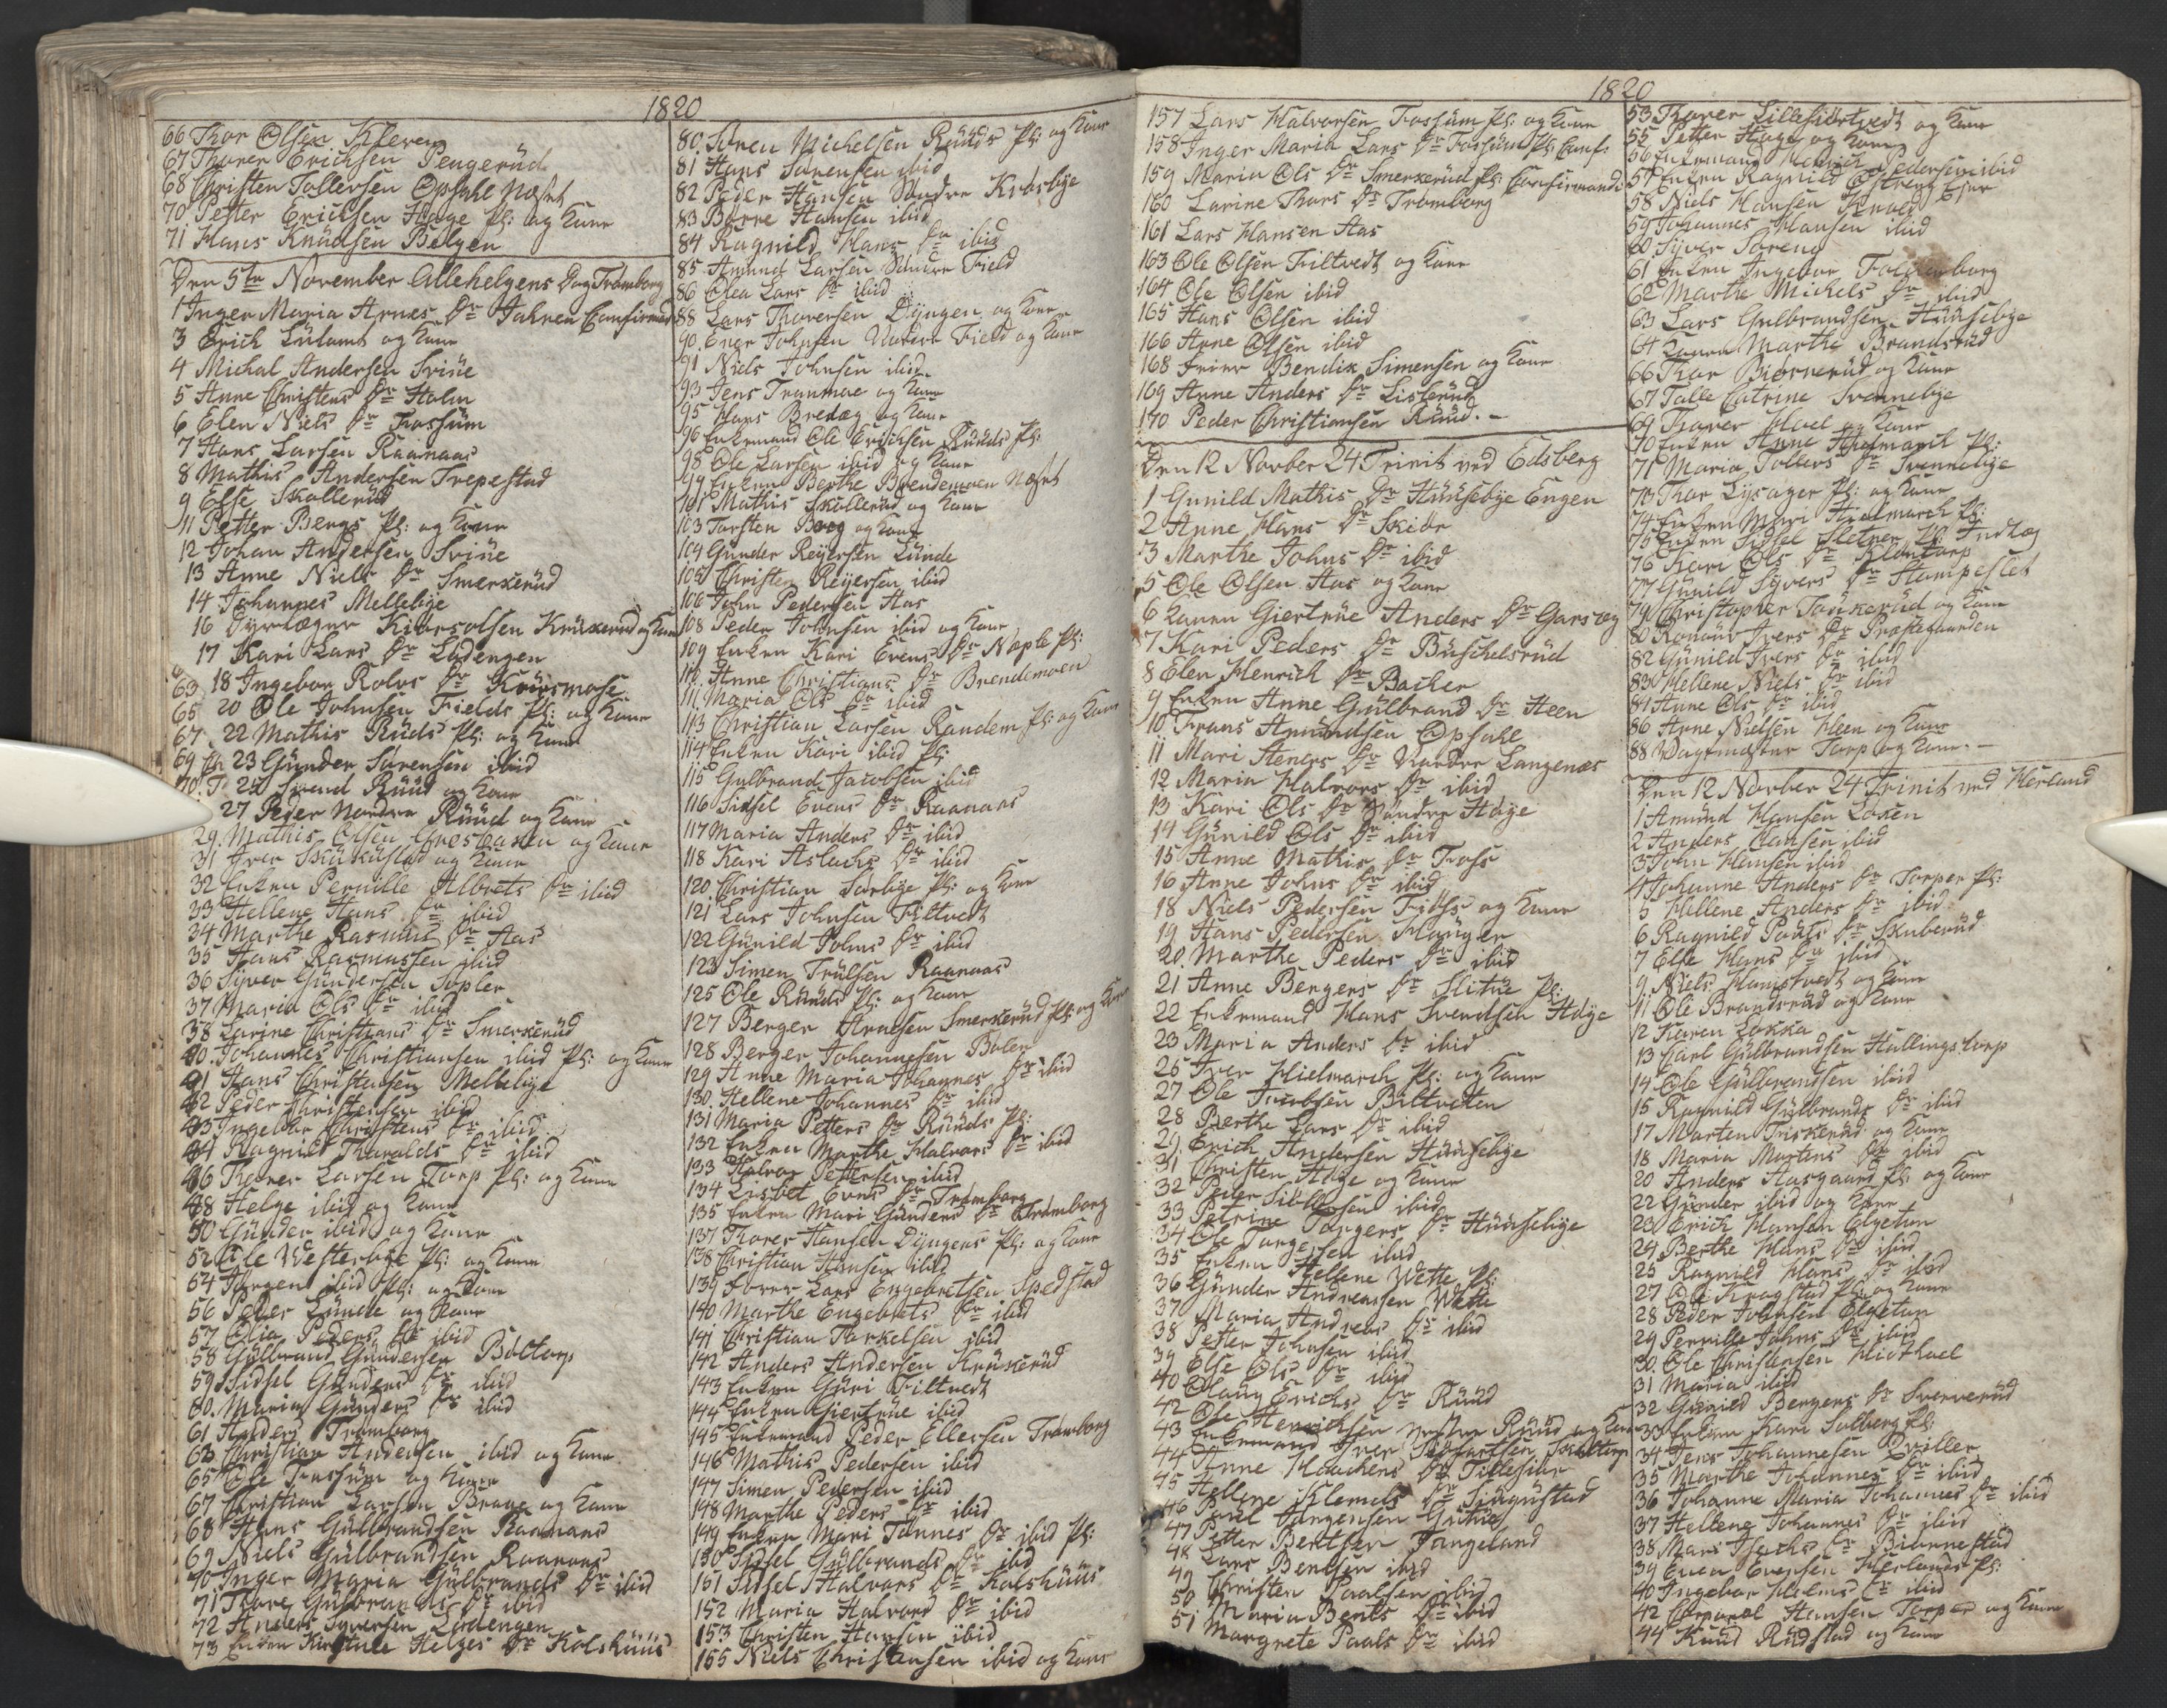 1820
66 Thor Olsen Kleven
67 Thorer Erichsen Pengerüd
68 Christen Tollersen Opsahl Næset
70 Petter Erichsen Hage Pl: og Kone
71 Hans Knüdsen Belgen
Den 5te November Allehelgens Dag Trømborg
1 Inger Maria Arnes Dr Jahren Confirmed
3 Erich Lülams og Kone
4 Michal Andersen Sviüe
5 Anne Christens Dr Holm
6 Elen Niels Dr Fossüm
7 Hans Larsen Raanaas
8 Mathis Andersen Trepestad
9 Else Skallerüd
11 Petter Bergs Pl: og Kone
12 Johan Andersen Sviüe
13 Anne Niels Dr Smerkerüd
14 Johannes Mellebye
16 Dyrlæger Olsen Krüxerud og Kone
17 Kari Lars Dr Lødengen
18 Ingebor Rolvs Dr Krüsmose
20 Ole Johnsen Fields Pl: og Kone
22 Mathis Rüds Pl: og Kone
23 Günder Sørensen ibid
25 Svend Rüüd og Kone
27 Peder Nordre Rüüd og Kone
29. Mathis Olsen og Kone
31 Iver Skükustad og Kone
32 Enken Pernille Albrets Dr ibid
33 Hellene Hans Dr ibid
34 Marthe Rasmus Dr Aas
35 Hans Rasmussen ibid
36 Syver Gündersen Sopler
37 Maria Ols Dr ibid
38 Larine Christians Dr Smerkerüd
40. Johannes Christiansen ibid Pl: og Kone
41 Hans Christensen Mellebye
42 Peder Christensen ibid
43 Ingebor Christens Dr ibid
44 Ragnild Tharalds Dr ibid
46 Thorer Larsen Torp Pl: og Kone
48 Helge ibid og Kone
50 Günder ibid og Kone
52 Ole Westerbye Pl: og Kone
54 Jørgen ibid Pl: og Kone
56 Peder Lünde og Kone
57 Olia Peders Dr ibid
58 Gülbrand Gündersen Boltorp
59 Sidsel Günders Dr ibid
60. Maria Günders Dr ibid
61 Anders Trømborg
63 Christian Andersen ibid og Kone
65 Ole Fossüm og Kone
67 Christian Larsen Braae og Kone
68 Hans Gülbrandsen Raanaas
69 Niels Gülbrandsen Raanaas
70 Inger Maria Gülbrands Dr ibid
71 Thore Gülbrands Dr ibid
72 Anders Syversen Lødengen
73 Enken Kirstine Helges Dr Kolshüüs
80. Søren Michelsen Rüüds Pl: og Kone
81 Hans Sørensen ibid
82 Peder Hansen Søndre Krosbye
83 Børre Hansen ibid
84 Ragnild Hans Dr ibid
85 Amund Larsen Søndre Field
86 Olea Lars Dr ibid
88 Lars Thorersen Dÿngen og Kone
90. Even Johnsen Nordre Field og Kone
91 Niels Johnsen ibid
93 Jens Tranmae og Kone
95 Hans Bredæg og Kone
96 Enkemand Ole Erichsen Rüüds Pl:
98 Ole Larsen ibid og Kone
99 Enken Berthe Brendemoen Næset
101 Mathis Skallerüd og Kone
103 Torsten Berg og Kone
104 Günder Reyersen Lünde
105 Christen Reyersen ibid
106 John Pedersen Aas
108 Peder Johnsen ibid og Kone
109 Enken Kari Evens Dr Nople Pl:
110. Anne Christians Dr Brendemoen
111. Maria Ols Dr ibid
113 Christian Larsen Randem Pl: og Kone
114 Enken Kari ibid Pl:
115 Gulbrand Jacobsen ibid
116 Sidsel Evens Dr Raanaas
117 Maria Anders Dr ibid
118 Kari Aslachs Dr ibid
120 Christian Sørbye Pl: og Kone
121 Lars Johnsen Filtvedt
122 Günild Johns Dr ibid
123 Simen Trülsen Raanaas
125 Ole Rüüds Pl: og Kone
127 Berger Arnesen Smerkerüd Pl: og Kone
128 Berger Johannesen Boler
129 Anne Maria Johannes Dr ibid
130. Hellene Johannes Dr ibid
131 Maria Petters Dr Rüüds Pl:
132 Enken Marthe Halvors Dr ibid
133 Halvor Pettersen ibid
134 Lisbet Evens Dr Trømborg
135 Enken Mari Günders Dr Trømborg
137 Thorer Hansen Dÿngens Pl: og Kone
138 Christian Hansen ibid
139 Forer Lars Engebretsen Spedstad
140 Marthe Engebrets Dr ibid
141 Christian Torkelsen ibid
142 Anders Andersen Krüxerüd
143 Enken Güri Filtvedt
144 Enken Giertrüe ibid
145 Enkemand Peder Ellersen Trømborg
146 Mathis Pedersen ibid
147 Simen Pedersen ibid
148 Marthe Peders Dr ibid
149 Enken Mari Tonnes Dr ibid Pl:
150 Sidsel Gülbrands Dr ibid
151 Sidsel Halvors Dr Kolshüüs
152 Maria Halvors Dr ibid
153 Christen Hansen ibid
155 Niels Christensen ibid og Kone
1820
157 Lars Halvorsen Fossüm Pl: og Kone
158 Inger Maria Lars Dr Fossüm Pl: Conf:
159 Maria Ols Dr Smerkerüd Pl: Confirmandi
160 Larine Thors Dr Trømborg
161 Lars Hansen Aas
163 Ole Olsen Filtvedt og Kone
164 Ole Olsen ibid
165 Hans Olsen ibid
166 Arne Olsen ibid
168 Bendix Simensen og Kone
169 Anne Anders Dr Lislerüd
170 Peder Christiansen Rüüd. -
Den 12 Novber 24 Trinit ved Edsberg
1 Gunild Mathis Dr Hüüsebye Engen
2 Anne Hans Dr Skiør
3 Marthe Johns Dr ibid
5 Ole Olsen Aas og Kone
6 Konen Giertrüe Anders Dr Garsæg
7 Kari Peders Dr Büschelsrüd
8 Elen Henrich Dr Backer
9 Enken Anne Gülbrand Dr Heen
10. Frans Amündsen Opsahl
11 Mari Steners Dr Nordre Langenæs
12 Maria Halvors Dr ibid
13 Kari Ols Dr Søndre Høÿe
14 Günild Ols Dr ibid
15 Anne Mathis Dr Foss
16 Anne Johns Dr ibid
18 Niels Pedersen Fjøss og Kone
19 Hans Pedersen Haüger
20. Marthe Peders Dr ibid
21 Anne Bergers Dr Slitüe Pl:
22 Enkemand Hans Svendsen Høÿe
23 Maria Anders Dr ibid
25 Iver Hielmarch Pl: og Kone
27 Ole Jacobsen Biltveten
28 Berthe Lars Dr ibid
29. Erich Andersen Hüüsebye
31 Christen Høÿe og Kone
32 Peder ibid
33 Petrine Torgers Dr Hüüsebye
34 Ole Torgersen ibid
35 Enken Hellene Wette Pl:
36 Günder Andreassen Wette
37 Maria Andreas Dr ibid
38 Petter Johnsen ibid
39 Else Ols Dr ibid
40 Olaug Erichs Dr Rüüd
42 Ole Henrichsen Nordre Rüüd og Kone
43 Enkemand Iver
44 Anne Haachens Dr Tillesiør
45 Hellene Klemets Dr Siøgüstad
46 Paul Jørgensen Gütüe
47 Petter Bertsen Fangeland
48 Lars Bentsen ibid
49 Christen Paulsen ibid
50 Maria Bents Dr ibid
51 Margrete Paals Dr ibid
53 Thorer Lillefiørtvedt og Kone
55 Petter Hage og Kone
56 Enkemand Henrich Pedersen ibid
57 Enken Ragnild
58 Niels Hansen
59 Johannes Hansen ibid
60 Syver Søreng
61 Enken Ingebor Falkenborg
62 Marthe Michels Dr ibid
63 Lars Gulbrandsen Hüüsebye
64 Konen Marthe Brandsrüd
66 Thor Biørnerüd og Kone
67 Tolle Catrine Svennebye
69 Thorer Hoel og Kone
70 Enken Anne Hielmarch Pl:
71 Maria Tollers Dr Svennebye
73 Thor Lysager Pl: og Kone
74 Enken Mari Hielmarch Pl:
75 Enken Sidsel Sletner Pl: Indlæg
76 Kari Ols Dr Klontorp
77 Günild Syvers Dr Stampeslet
79 Christopher Taükerüd og Kone
80 Ivers Dr Præstegaarden
82 Günild Ivers Dr ibid
83 Hellene Niels Dr ibid
84 Anne Ols Dr ibid
86 Arne Nielsen Heen og Kone
88 Vagtmester Torp og Kone. -
Den 12 Novber 24 Trinit ved Herland
1 Amünd Hansen Løken
2 Anders Hansen ibid
3 John Hansen ibid
4 Johanne Anders Dr Torper Pl:
5 Hellene Anders Dr ibid
6 Ragnild Pouls Dr Skuberüd
7 Else Hans Dr ibid
9 Niels Hamstvedt og Kone
11 Ole Brandsrüd og Kone
12 Karen Løkka
13 Karl Gülbrandsen Hallingstorp
14 Ole Gülbrandsen ibid
15 Ragnild Gülbrands Dr ibid
17 Morten Friskerüd og Kone
18 Maria Mortens Dr ibid
20 Anders Aasgaard Pl: og Kone
22 Günder ibid og Kone
23 Erich Hansen Elgetun
24 Berthe Hans Dr ibid
25 Ragnild Hans Dr ibid
27 Ole Kragstad Pl: og Kone
28 Peder Johnsen Elgetun
29 Pernille Johns Dr ibid
30. Ole Christensen Midthoel
31 Maria ibid
32 Günild Bergers Dr Sververüd
33 Enken Kari Solberg Pl:
34 Jens Johannesen Qviller
35 Marthe Johannes Dr ibid
36 Johanne Maria Johannes Dr ibid
37 Hellene Johannes Dr ibid
38 Mari Dr Biørnestad
39 Even Evensen Herlands Pl:
40 Ingebor Helmes Dr ibid
42 Corporal Hansen Torper og Kone
44 Knüd Rüdstad og Kone